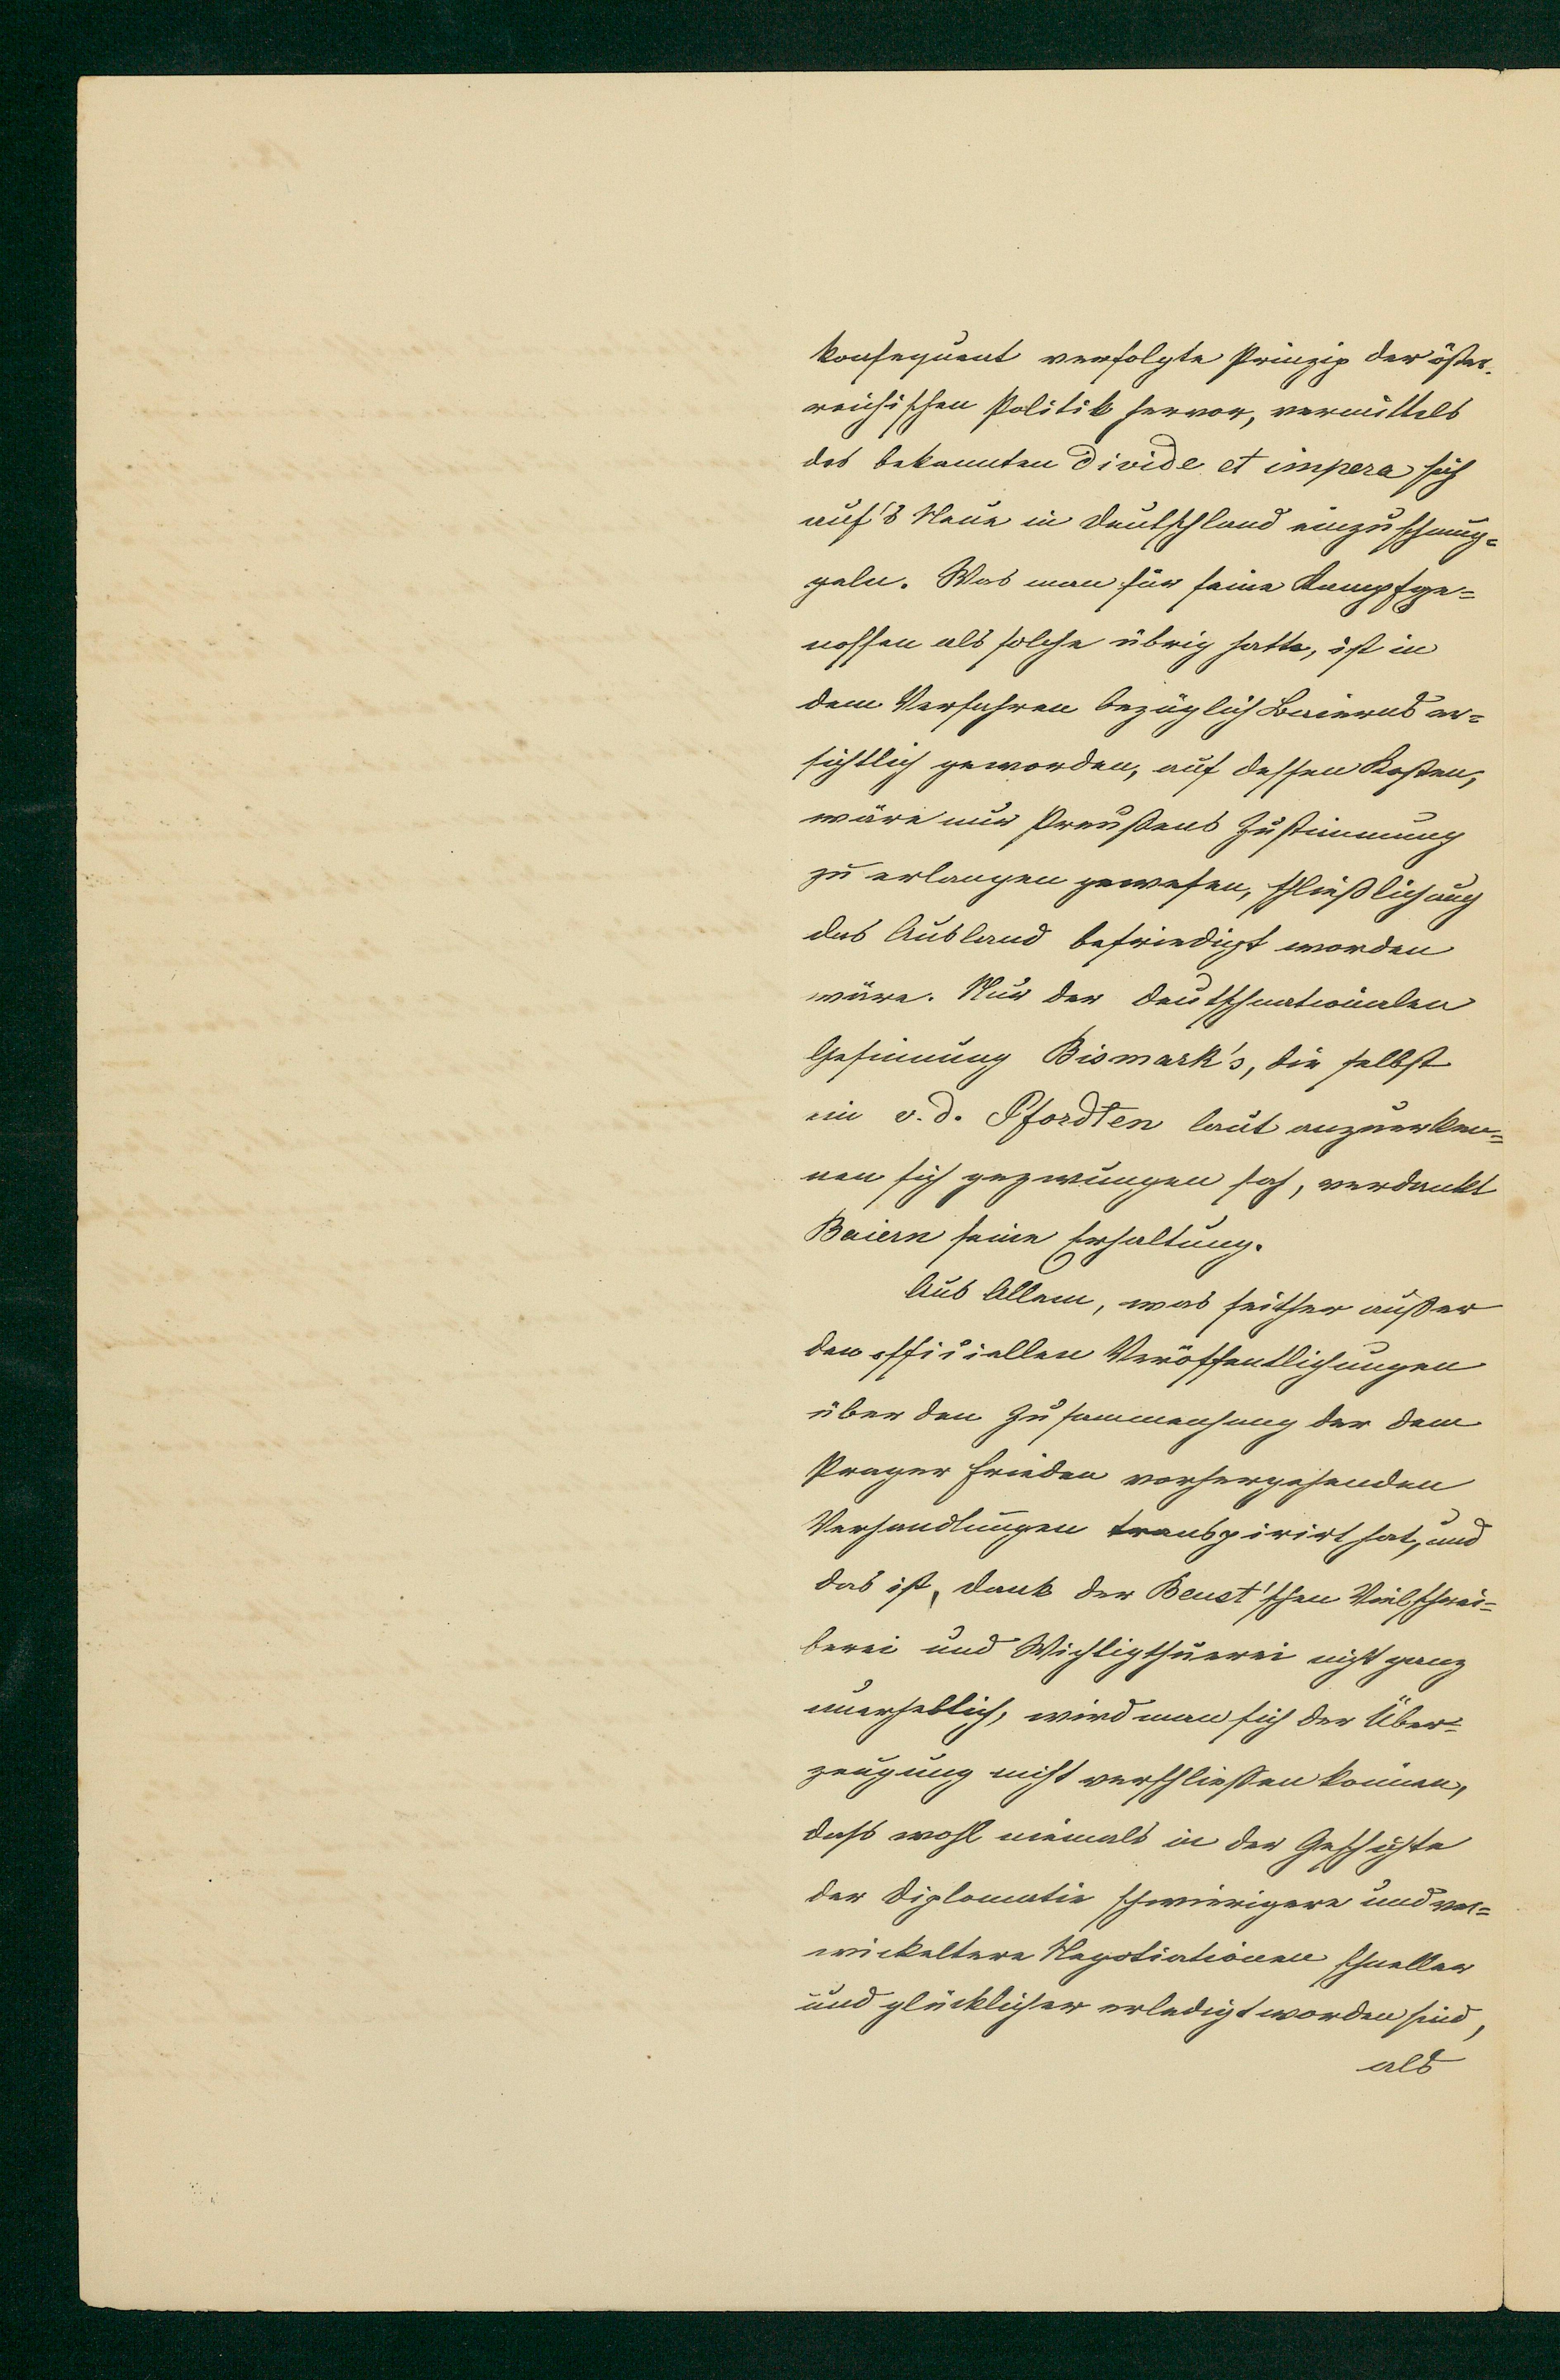 konsequent verfolgte Prinzip der öster-
reichischen Politik hervor, vermittels
des bekannten divide et impera sich
auf's Neue in Deutschland einzuschmug=
geln. Was man für seine Kampfge=
nossen als solche übrig hatte, ist in
dem Verfahren bezüglich Baierns er=
sichtlich geworden, auf dessen Kosten,
wäre nur Preußens Zustimmung
zu erlangen gewesen, schließlich auch
das Ausland befriedigt worden
wäre. Nur der deutschnationalen
Gesinnung Bismark's, die selbst
ein v. d. Pfordten laut anzuerken=
nen sich gezwungen sah, verdankt
Baiern seine Erhaltung.
Aus Allem, was seither außer
den officiellen Veröffentlichungen
über den Zusammenhang der dem
Prager Frieden vorhergehenden
Verhandlungen transpirirt hat, und
das ist, dank der Beust'schen Vielschrei=
berei und Wichtigthuerei nicht ganz
unerheblich, wird man sich der Über=
zeugung nicht verschließen können,
dass wohl niemals in der Geschichte
der Diplomatie schwierigere und ver=
wickeltere Negotiationen schneller
und glücklicher erledigt worden sind,
als